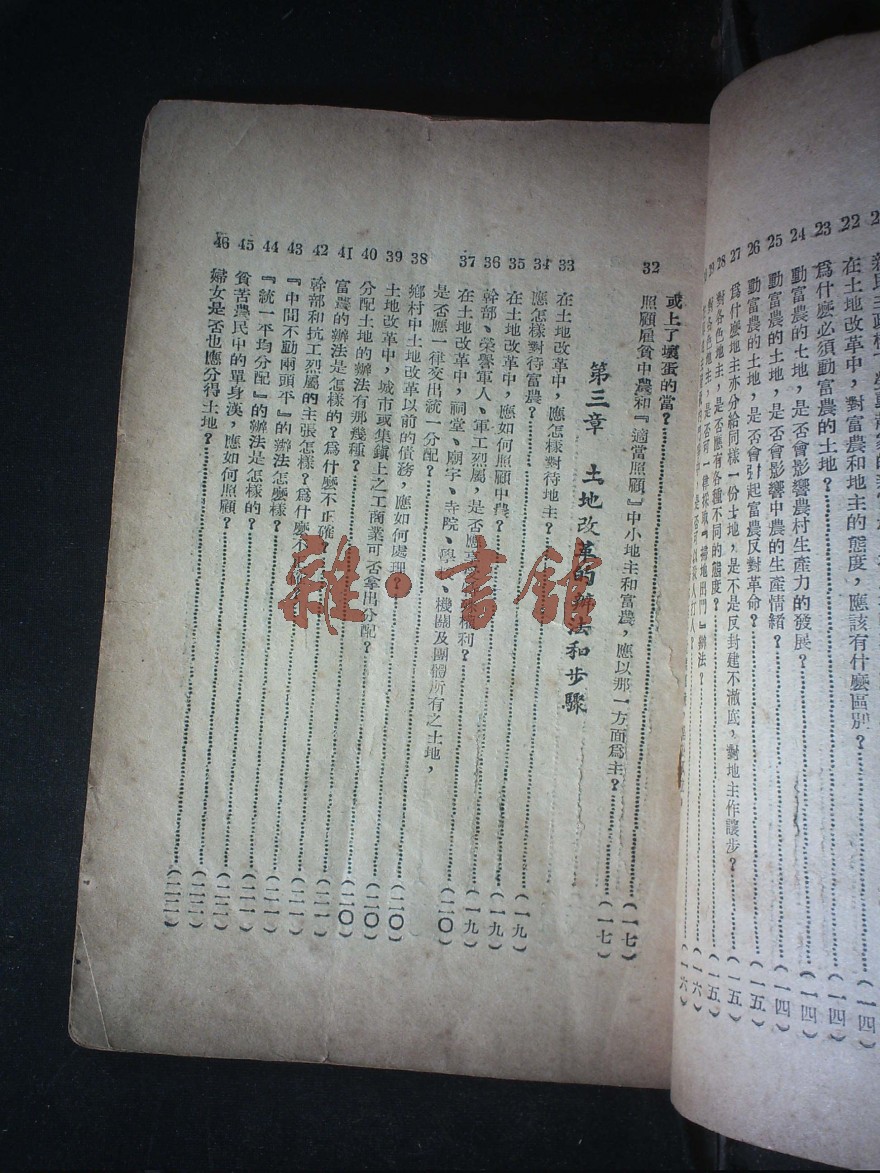 22 在土地改革中，對富農和地主的態度，應該有什麼區別？（一四）
23 爲什麼必須動富農的土地？（一四）
24 動富農的土地，是否會影響農村生產力的發展？（一四）
25 動富農的土地，是否會影響中農的生產情緒？（一四）
26 動富農的土地，是否會引起富農反對革命？（一五）
27 爲什麼地主亦分給同樣一份土地，是不是反封建不澈底，對地主作讓步？（一五）
28 對各色地主，是否應有各種不同的態度？（一五）
29 對各色地主，是否可一律採取『掃地出門』辦法？（一六）
是否可以殺人打人？（一六）
或上了壞蛋的當？（一七）
32 照顧雇貧中農和『適當照顧』中小地主和富農，應以那一方面爲主？（一七）
第三章 土地改革的辦法和步驟
33 在土地改革中，應怎樣對待地主？（一九）
34 應怎樣對待富農？（一九）
35 在土地改革中，應如何照顧中農？（一九）
36 幹部、榮譽軍人、軍工烈屬，是否應享權利？（二〇）
37 在土地改革中，祠堂、廟宇、寺院、學校、機關及團體所有之土地，
是否應一律交出統一分配？（二〇）
38 鄉村中土地改革以前的債務，應如何處理？（二〇）
39 土地改革中，城市或集鎮上之工商業可否拿出分配？（二〇）
40 分配土地的辦法有那幾種？（二一）
41 富農的辦法是怎樣的？爲什麼不正確？（二一）
42 幹部和抗工烈屬的主張怎樣？爲什麼不正確？（二一）
43 『中間不動兩頭平』的辦法怎麼樣？（二一）
44 『統一平均分配』的辦法是怎樣的？（二一）
45 貧苦農民中的單身漢，應如何照顧？（二二）
46 婦女是否也應分得土地？（二二）
雜·書館